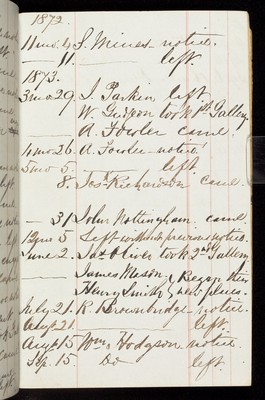 1872.
11 mo. 4 S. Mines notice.
— 11. — left.
1873.
3 mo 29. J. Parkin left
W. Gudgeon took 1st Gallery
A. Fowler came.
4 mo 26. A. Fowler notice
5 mo 5. — left.
8. Jos. Richardson came.
— 31 John Nottingham came.
5. Left without previous notice.
June 2. Jas Oliver took 2nd Gallery
James Mason & Began their
Henry Smith new places.
July 21. R. Brownbridge notice.
Augt 21. — left.
Augt 15 Wm Hodgson notice.
Sep. 15. Do left.